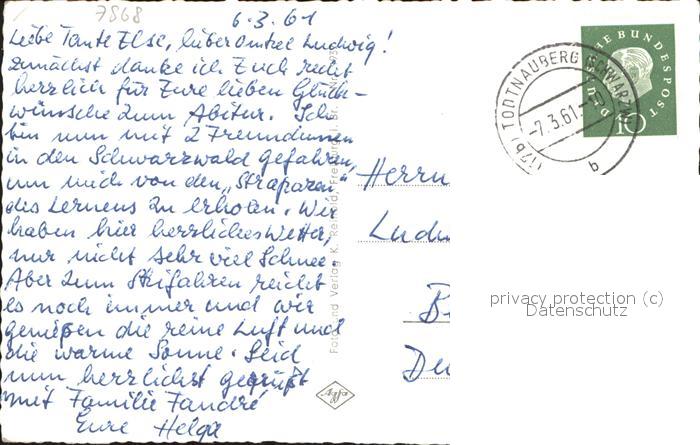 7868
6.3.61
Liebe Tante Else, lieber Onkel Ludwig!
Zunächst danke ich Euch recht
herzlich für Eure lieben Glück-
wünsche zum Abitur. Ich
bin nun mit 2 Freundinnen
in den Schwarzwald gefahren,
um mich von den „Strapazen"
des Lernens zu erholen. Wir
haben hier herrliches Wetter,
nur nicht sehr viel Schnee.
Aber zum Skifahren reicht
es noch immer und wir
genießen die reine Luft und
die warme Sonne. Seid
nun herzlichst gegrüßt
mit Familie Fandré
Eure Helga
Foto und Verlag K.
Agfa
Herrn
Ludw
B
Deu
(17b) TODTNAUBERG (SCHWARZW
-7.3.61.-10
b
DEUTSCHE BUNDESPOST
10
privacy protection (c)
Datenschutz